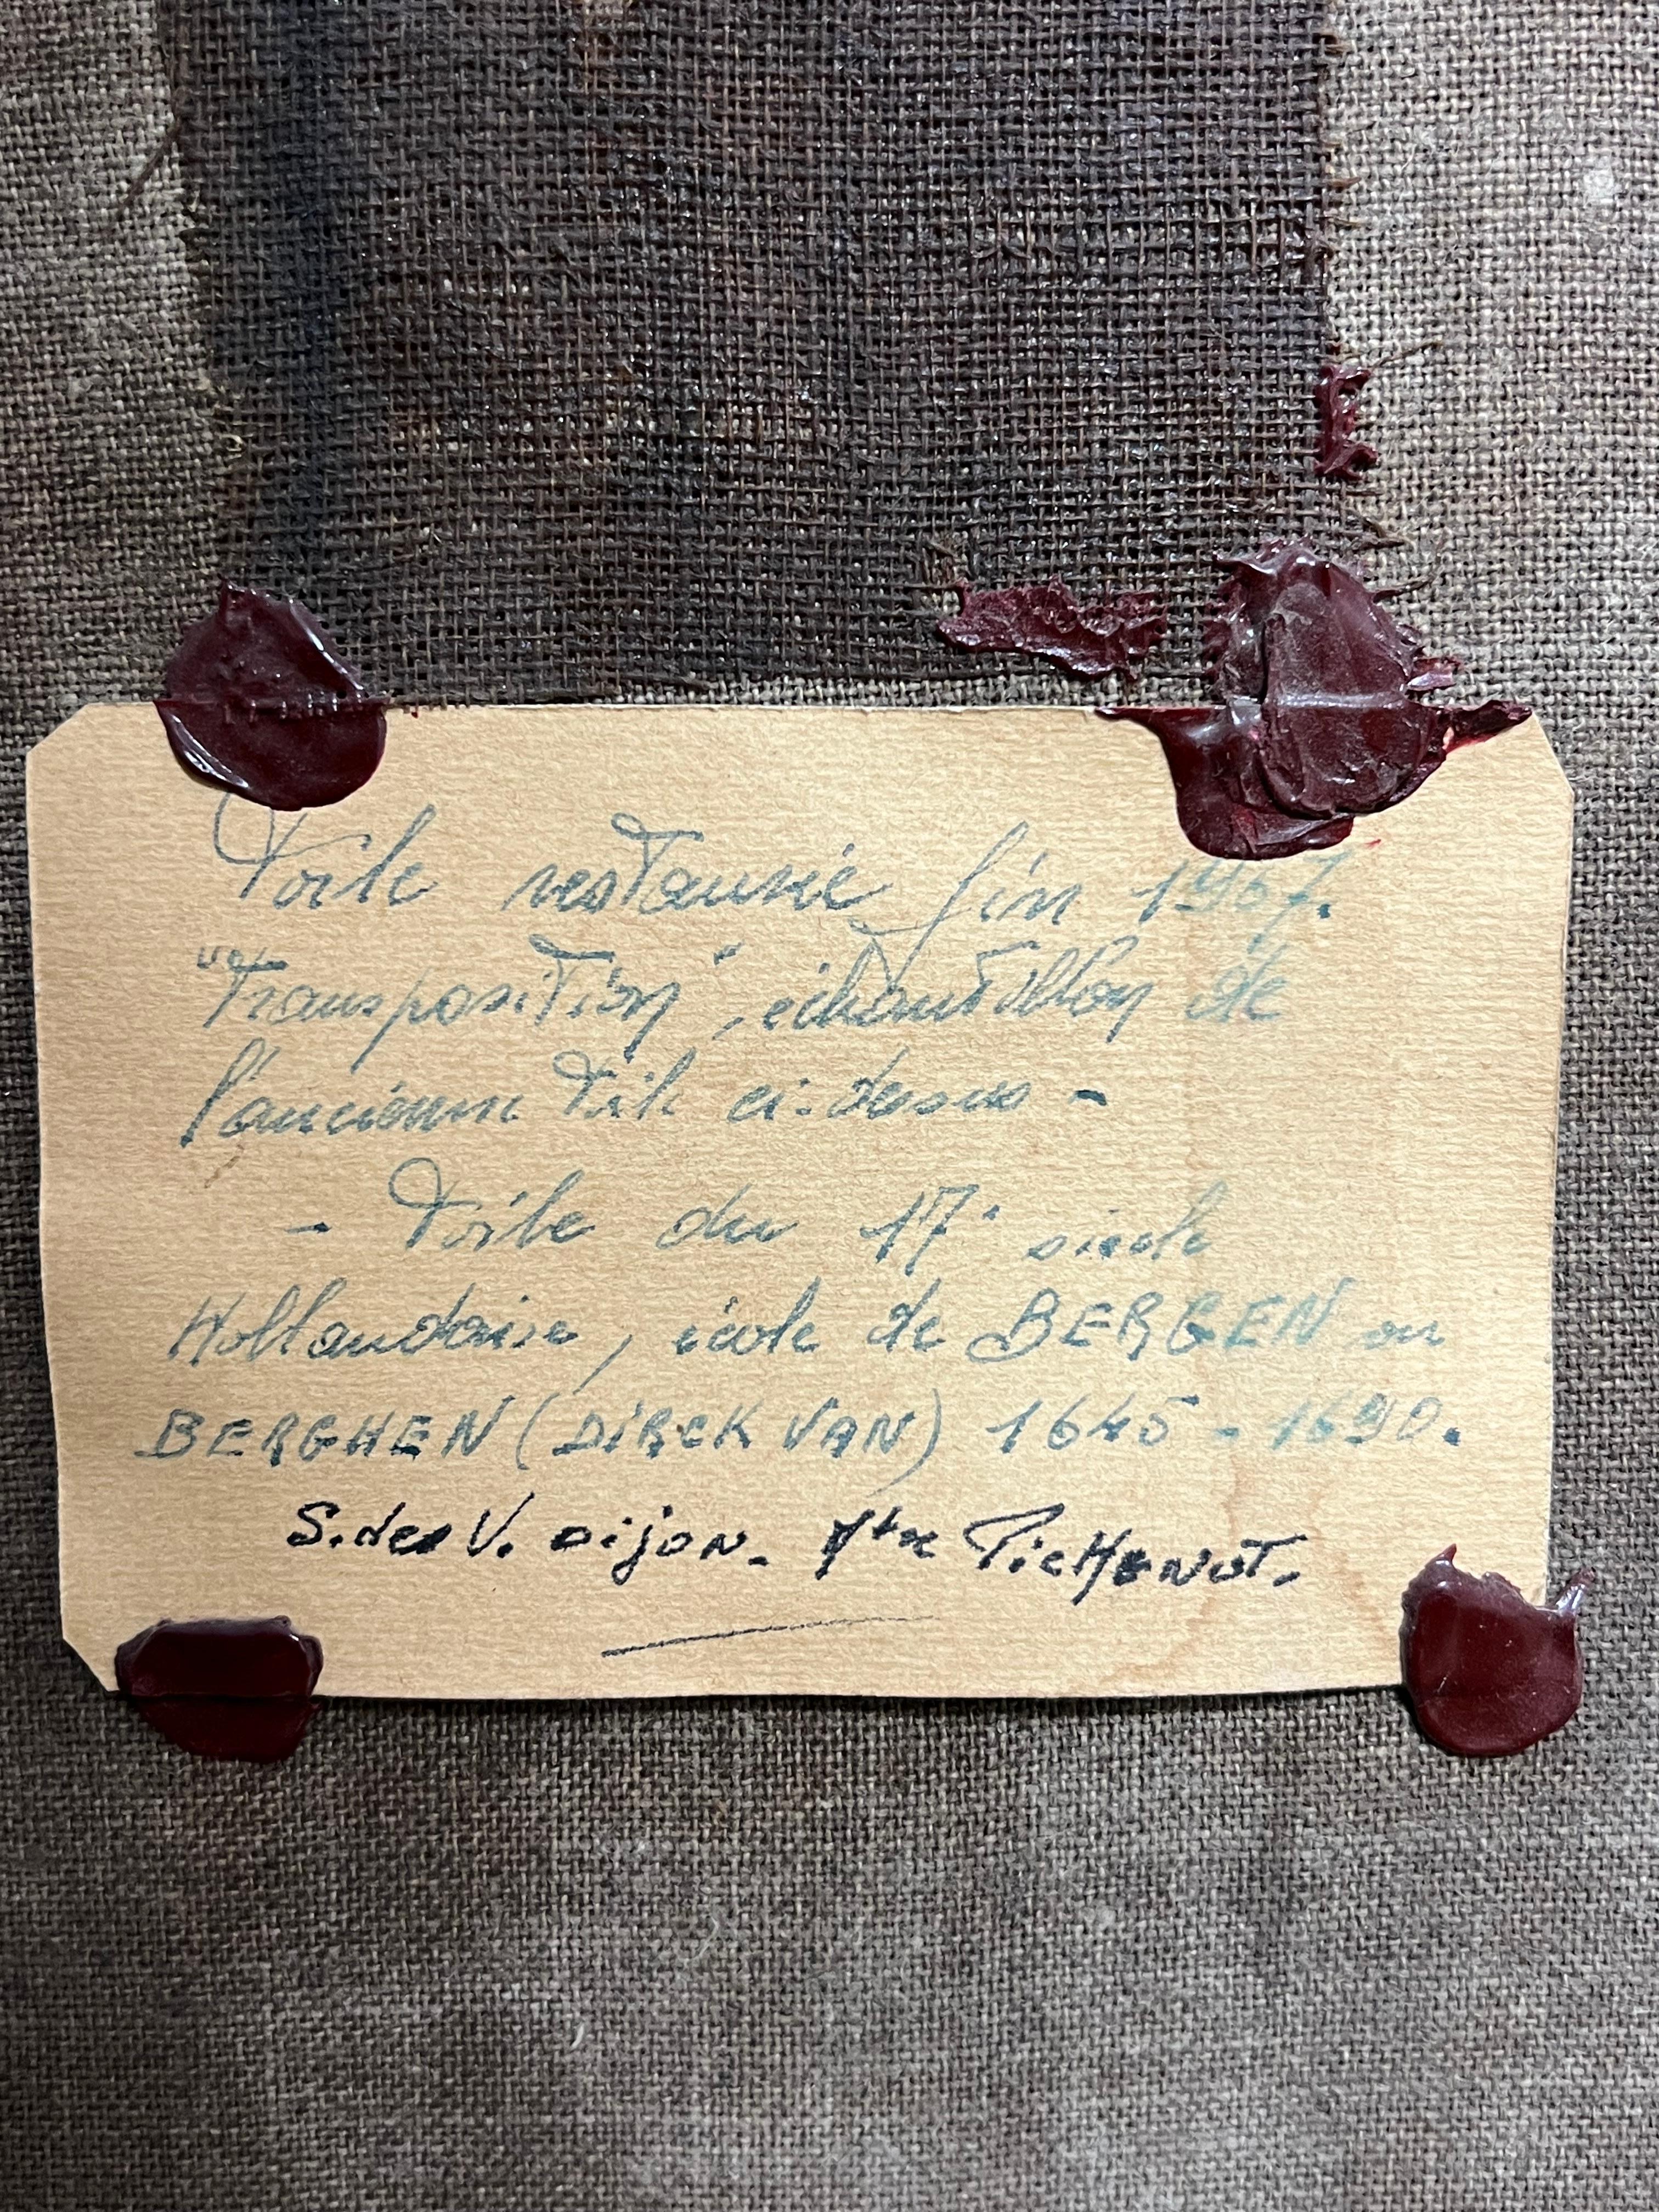 Toile restaurée fin 1967.
"Transposition", échantillon de
l'ancienne toile ci-dessus -
- Toile du 17e siècle
Hollandaise, école de BERGEN ou
BERGHEN (DIRCK VAN) 1645 - 1690.
S. des V. Dijon. Mtre PICHENOT.